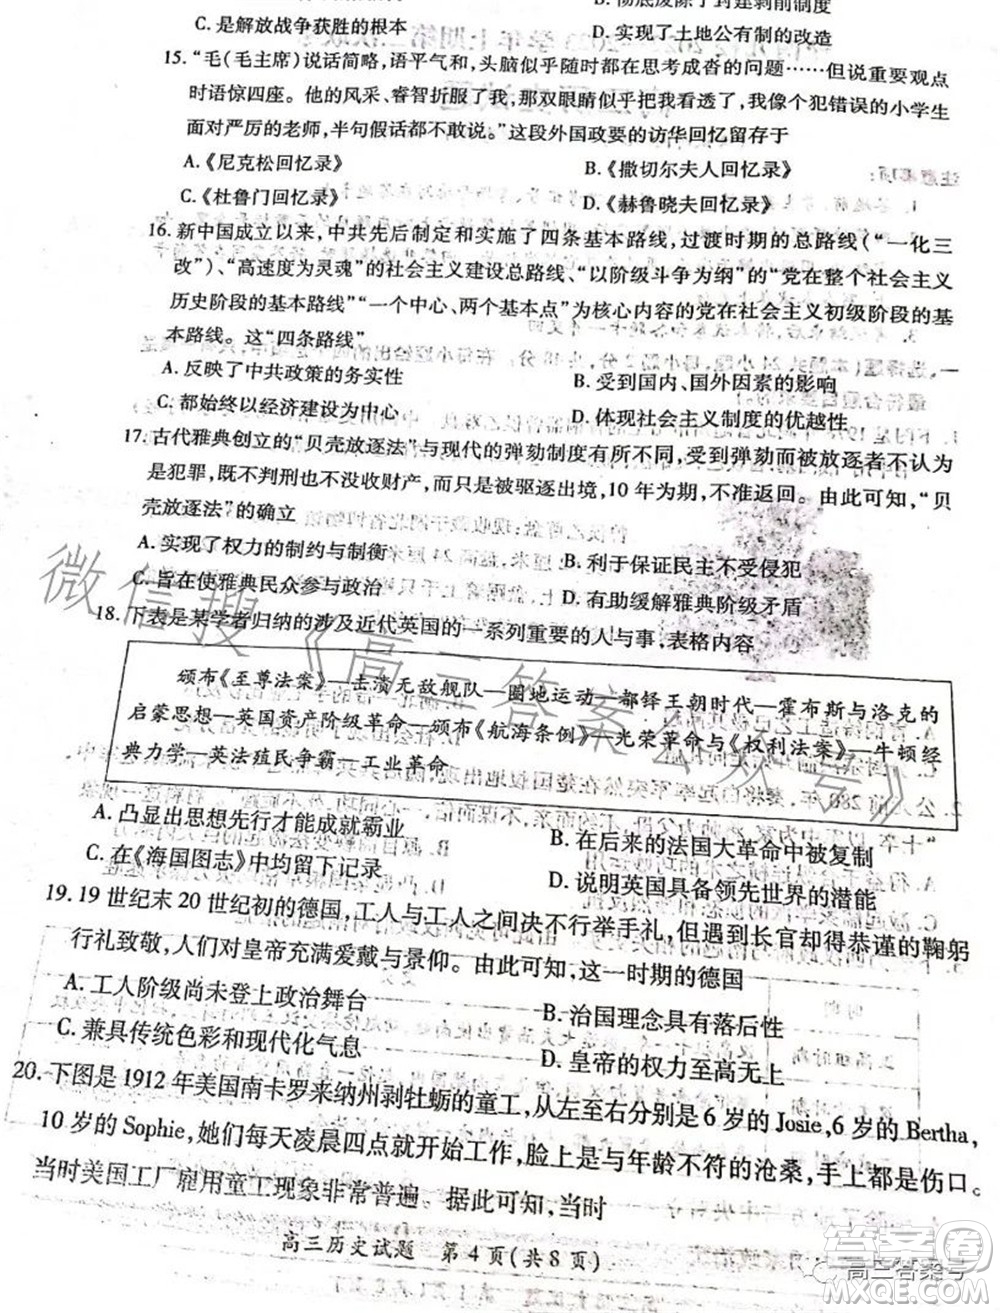 B. 彻底废除了封建剥削制度
C. 是解放战争获胜的根本
D. 实现土地公有制的改造
15. “毛(毛主席)说话简略,语平气和,头脑似乎随时都在思考成沓的问题……但说重要观点
时语惊四座。他的风采、睿智折服了我,那双眼睛似乎把我看透了,我像个犯错误的小学生
面对严厉的老师,半句假话都不敢说。”这段外国政要的访华回忆留存于
A.《尼克松回忆录》
B.《撒切尔夫人回忆录》
C.《杜鲁门回忆录》
D.《赫鲁晓夫回忆录》
16. 新中国成立以来,中共先后制定和实施了四条基本路线,过渡时期的总路线(“一化三
改”)、“高速度为灵魂”的社会主义建设总路线、“以阶级斗争为纲”的“党在整个社会主义
历史阶段的基本路线”“一个中心、两个基本点”为核心内容的党在社会主义初级阶段的基
本路线。这“四条路线”
A. 反映了中共政策的务实性
B. 受到国内、国外因素的影响
C. 都始终以经济建设为中心
D. 体现社会主义制度的优越性
17. 古代雅典创立的“贝壳放逐法”与现代的弹劾制度有所不同,受到弹劾而被放逐者不认为
是犯罪,既不判刑也不没收财产,而仅是被驱逐出境,10年为期,不准返回。由此可知,“贝
壳放逐法”的确立
A. 实现了权力的制约与制衡
B. 利于保证民主不受侵犯
C. 旨在使雅典民众参与政治
D. 有助缓解雅典阶级矛盾
18. 下表是某学者归纳的涉及近代英国的一系列重要的人与事,表格内容
颁布《至尊法案》—击溃无敌舰队—圈地运动—都铎王朝时代—霍布斯与洛克的
启蒙思想—英国资产阶级革命—颁布《航海条例》—光荣革命与《权利法案》—牛顿经
典力学—英法殖民争霸—工业革命
A. 凸显出思想先行才能成就霸业
B. 在后来的法国大革命中被复制
C. 在《海国图志》中均留下记录
D. 说明英国具备领先世界的潜能
19. 19世纪末20世纪初的德国,工人与工人之间决不行举手礼,但遇到长官却得恭谨的鞠躬
行礼致敬,人们对皇帝充满爱戴与景仰。由此可知,这一时期的德国
A. 工人阶级尚未登上政治舞台
B. 治国理念具有落后性
C. 兼具传统色彩和现代化气息
D. 皇帝的权力至高无上
20. 下图是1912年美国南卡罗来纳州剥牡蛎的童工,从左至右分别是6岁的Josie,6岁的Bertha,
10岁的Sophie,她们每天凌晨四点就开始工作,脸上是与年龄不符的沧桑,手上都是伤口。
当时美国工厂雇用童工现象非常普遍。据此可知,当时
高三历史试题 第4页(共8页)
微信搜《高三答案公众号》
答案圈
高三答案号